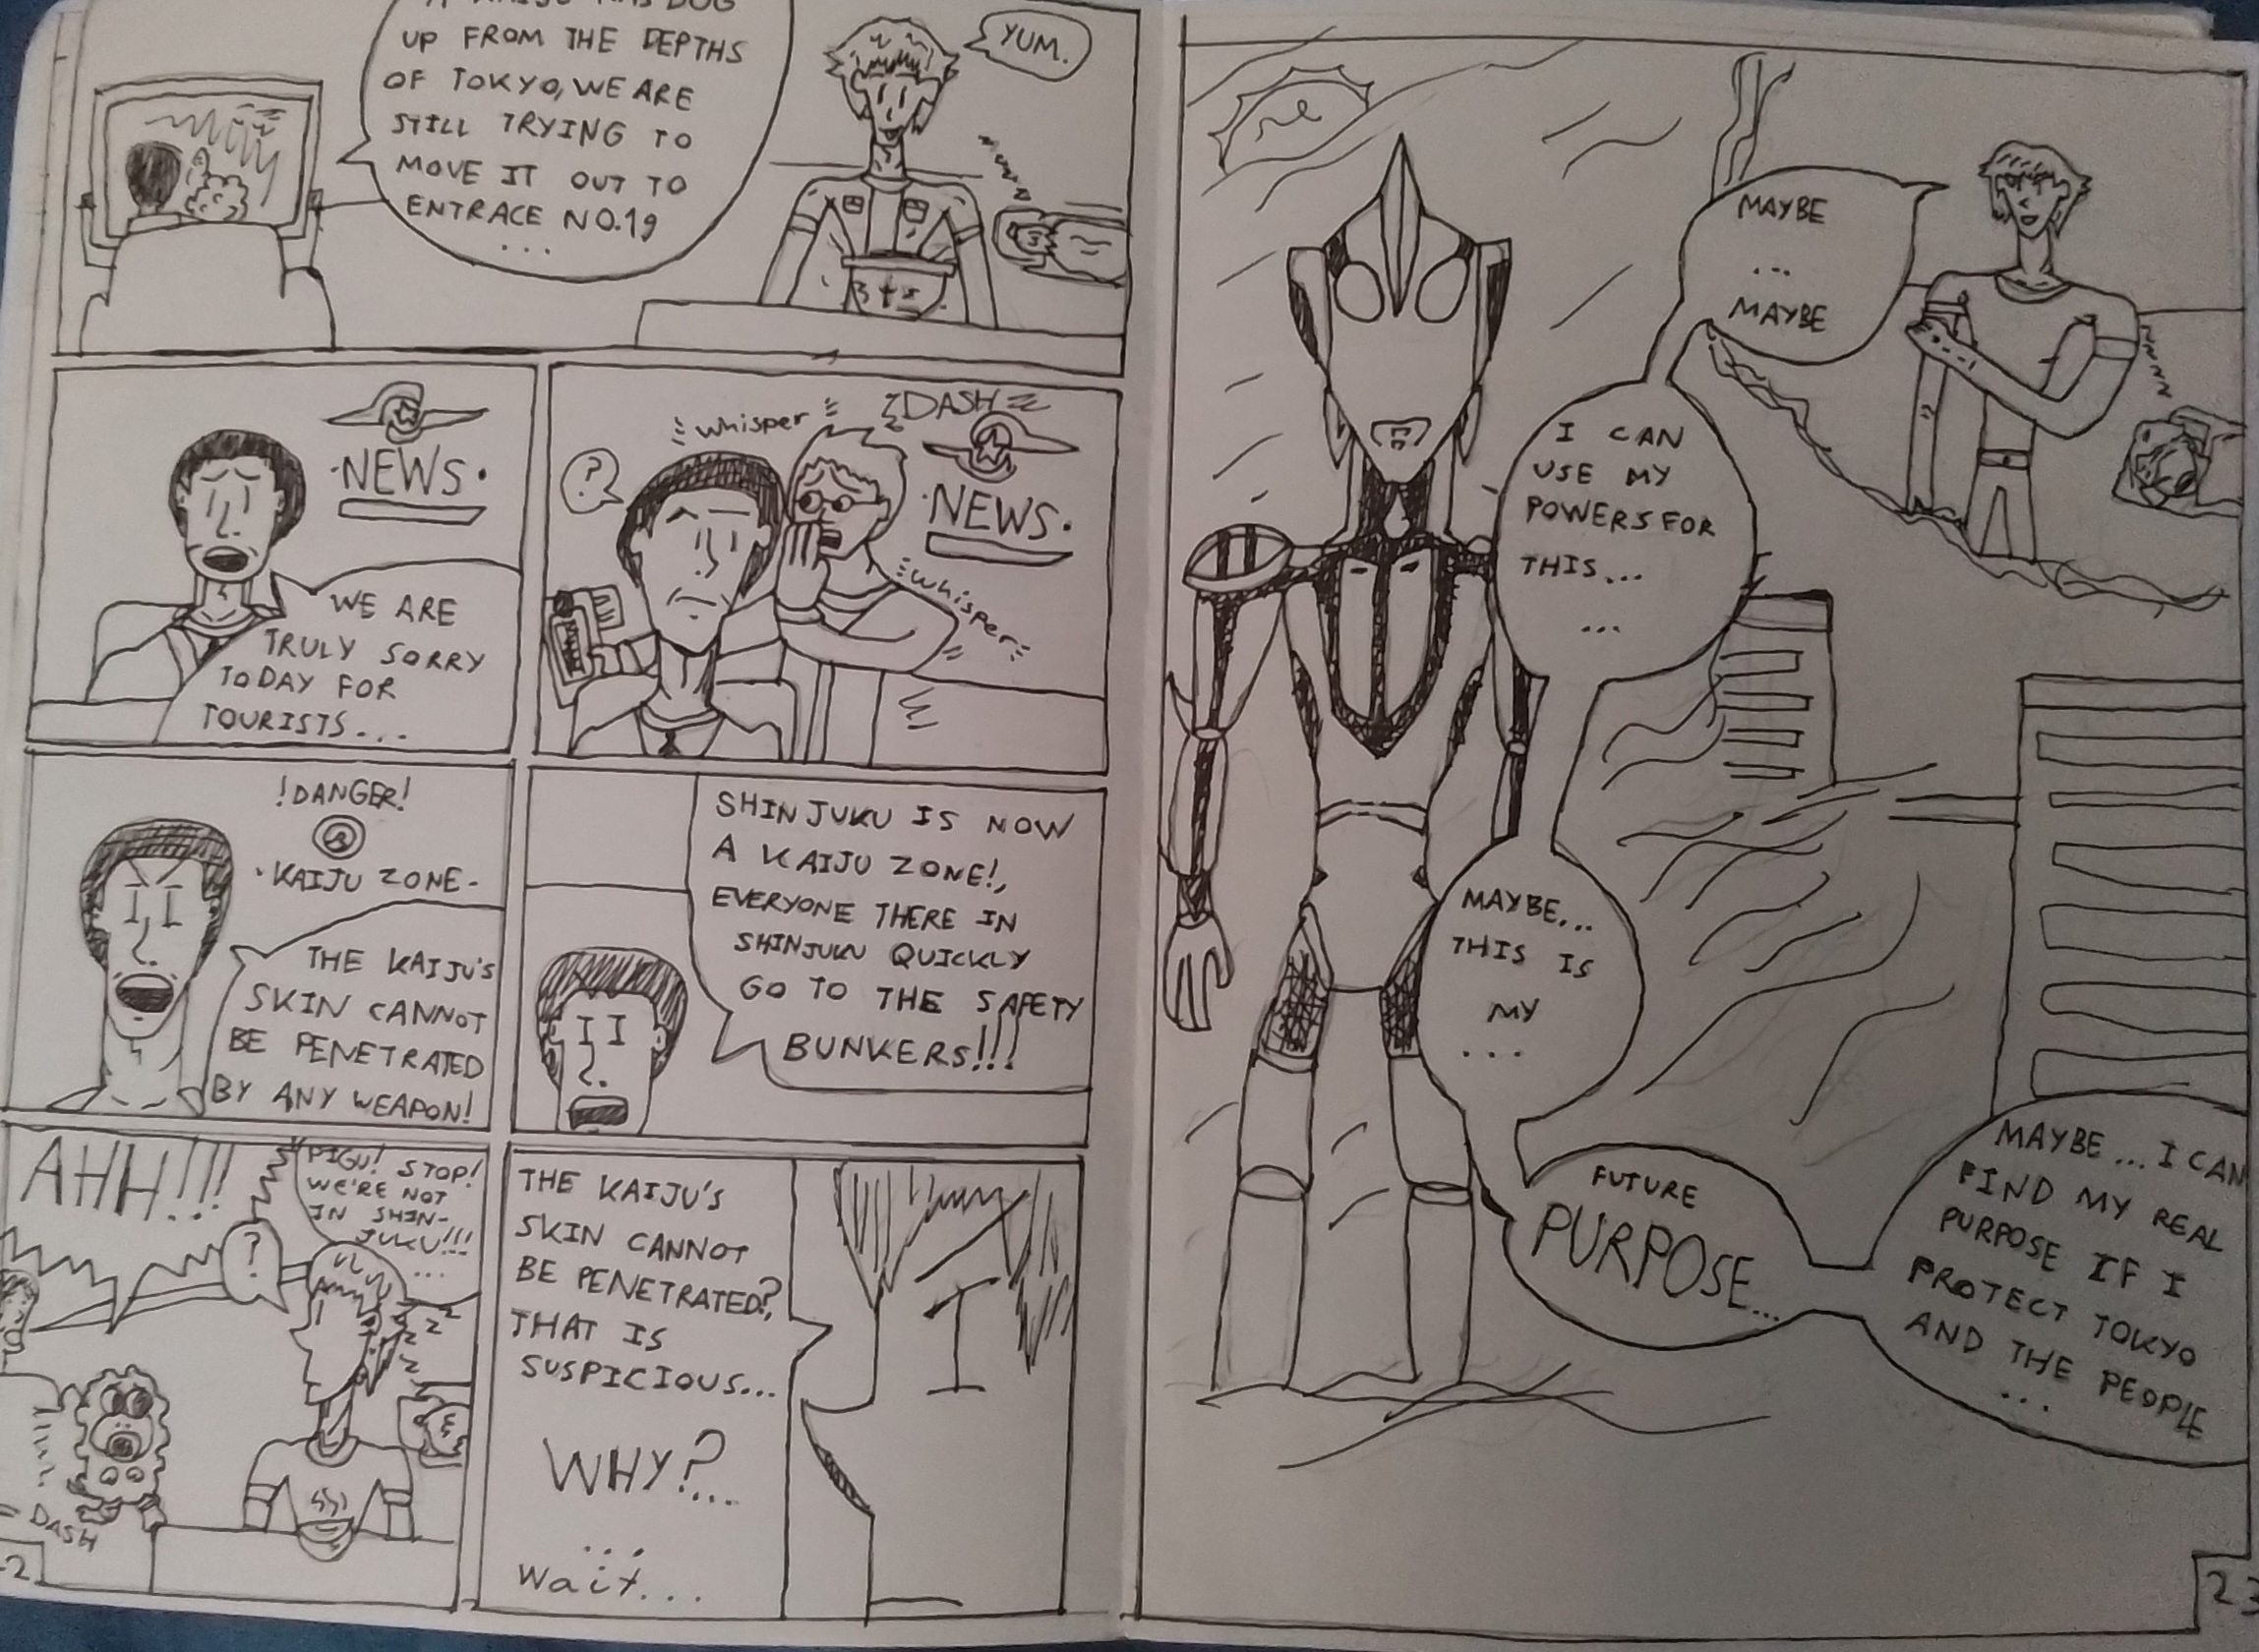 A KAIJU HAS DUG
UP FROM THE DEPTHS
OF TOKYO, WE ARE
STILL TRYING TO
MOVE IT OUT TO
ENTRACE NO.19
...
YUM.
·NEWS·
WE ARE
TRULY SORRY
TODAY FOR
TOURISTS...
?
whisper
DASH
·NEWS·
whisper
!DANGER!
·KAIJU ZONE-
THE KAIJU'S
SKIN CANNOT
BE PENETRATED
BY ANY WEAPON!
SHINJUKU IS NOW
A KAIJU ZONE!,
EVERYONE THERE IN
SHINJUKU QUICKLY
GO TO THE SAFETY
BUNKERS!!!
AHH!!!
PIGU! STOP!
WE'RE NOT
IN SHIN-
JUKU!!!
...
?
z z
z
z
z
DASH
THE KAIJU'S
SKIN CANNOT
BE PENETRATED?,
THAT IS
SUSPICIOUS...
WHY?...
...
Wait...
MAYBE
...
MAYBE
I CAN
USE MY
POWERS FOR
THIS...
...
MAYBE...
THIS IS
MY
...
FUTURE
PURPOSE...
MAYBE... I CAN
FIND MY REAL
PURPOSE IF I
PROTECT TOKYO
AND THE PEOPLE
...
23